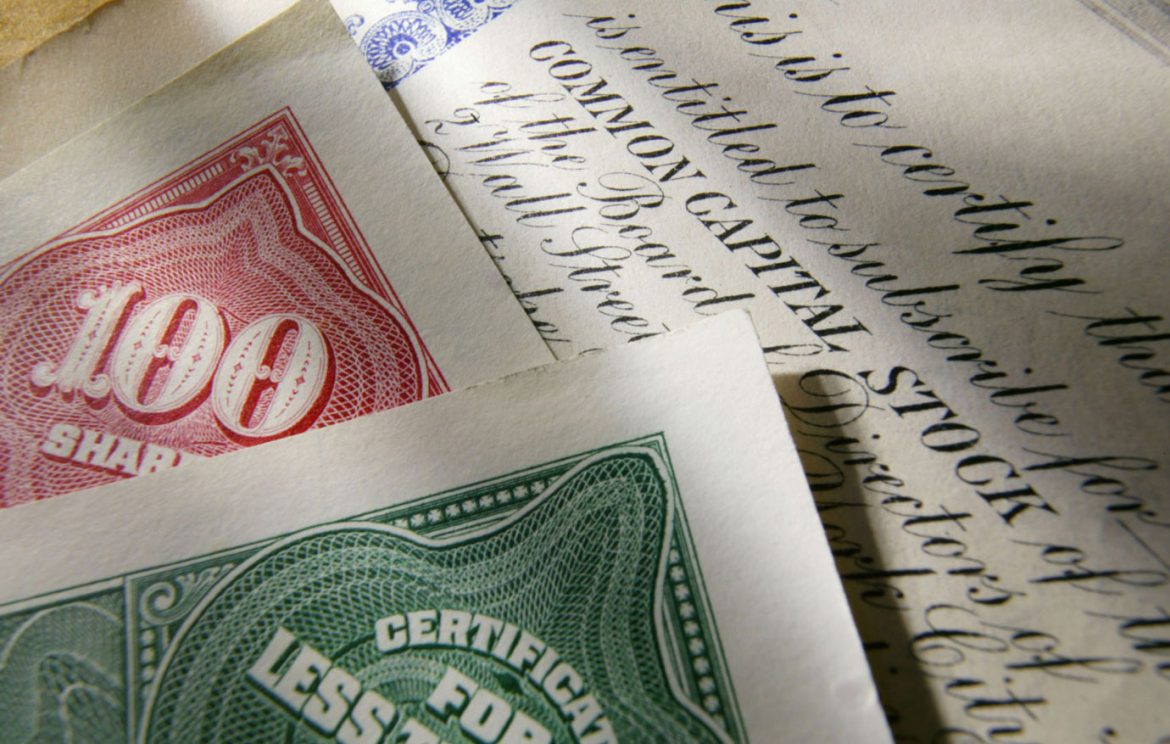 his is to certify tha
is entitled to subscribe for
COMMON CAPITAL STOCK of th
of the Board Directors of
2 Wall Street York City
100
SHAR
CERTIFICAT
FOR
LESS T